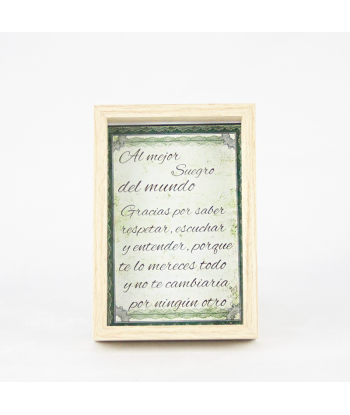 Al mejor
Suegro
del mundo
Gracias por saber
respetar, escuchar
y entender, porque
te lo mereces todo
y no te cambiaria
por ningún otro